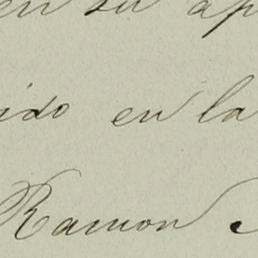 en su ap
ido en la
Ramon